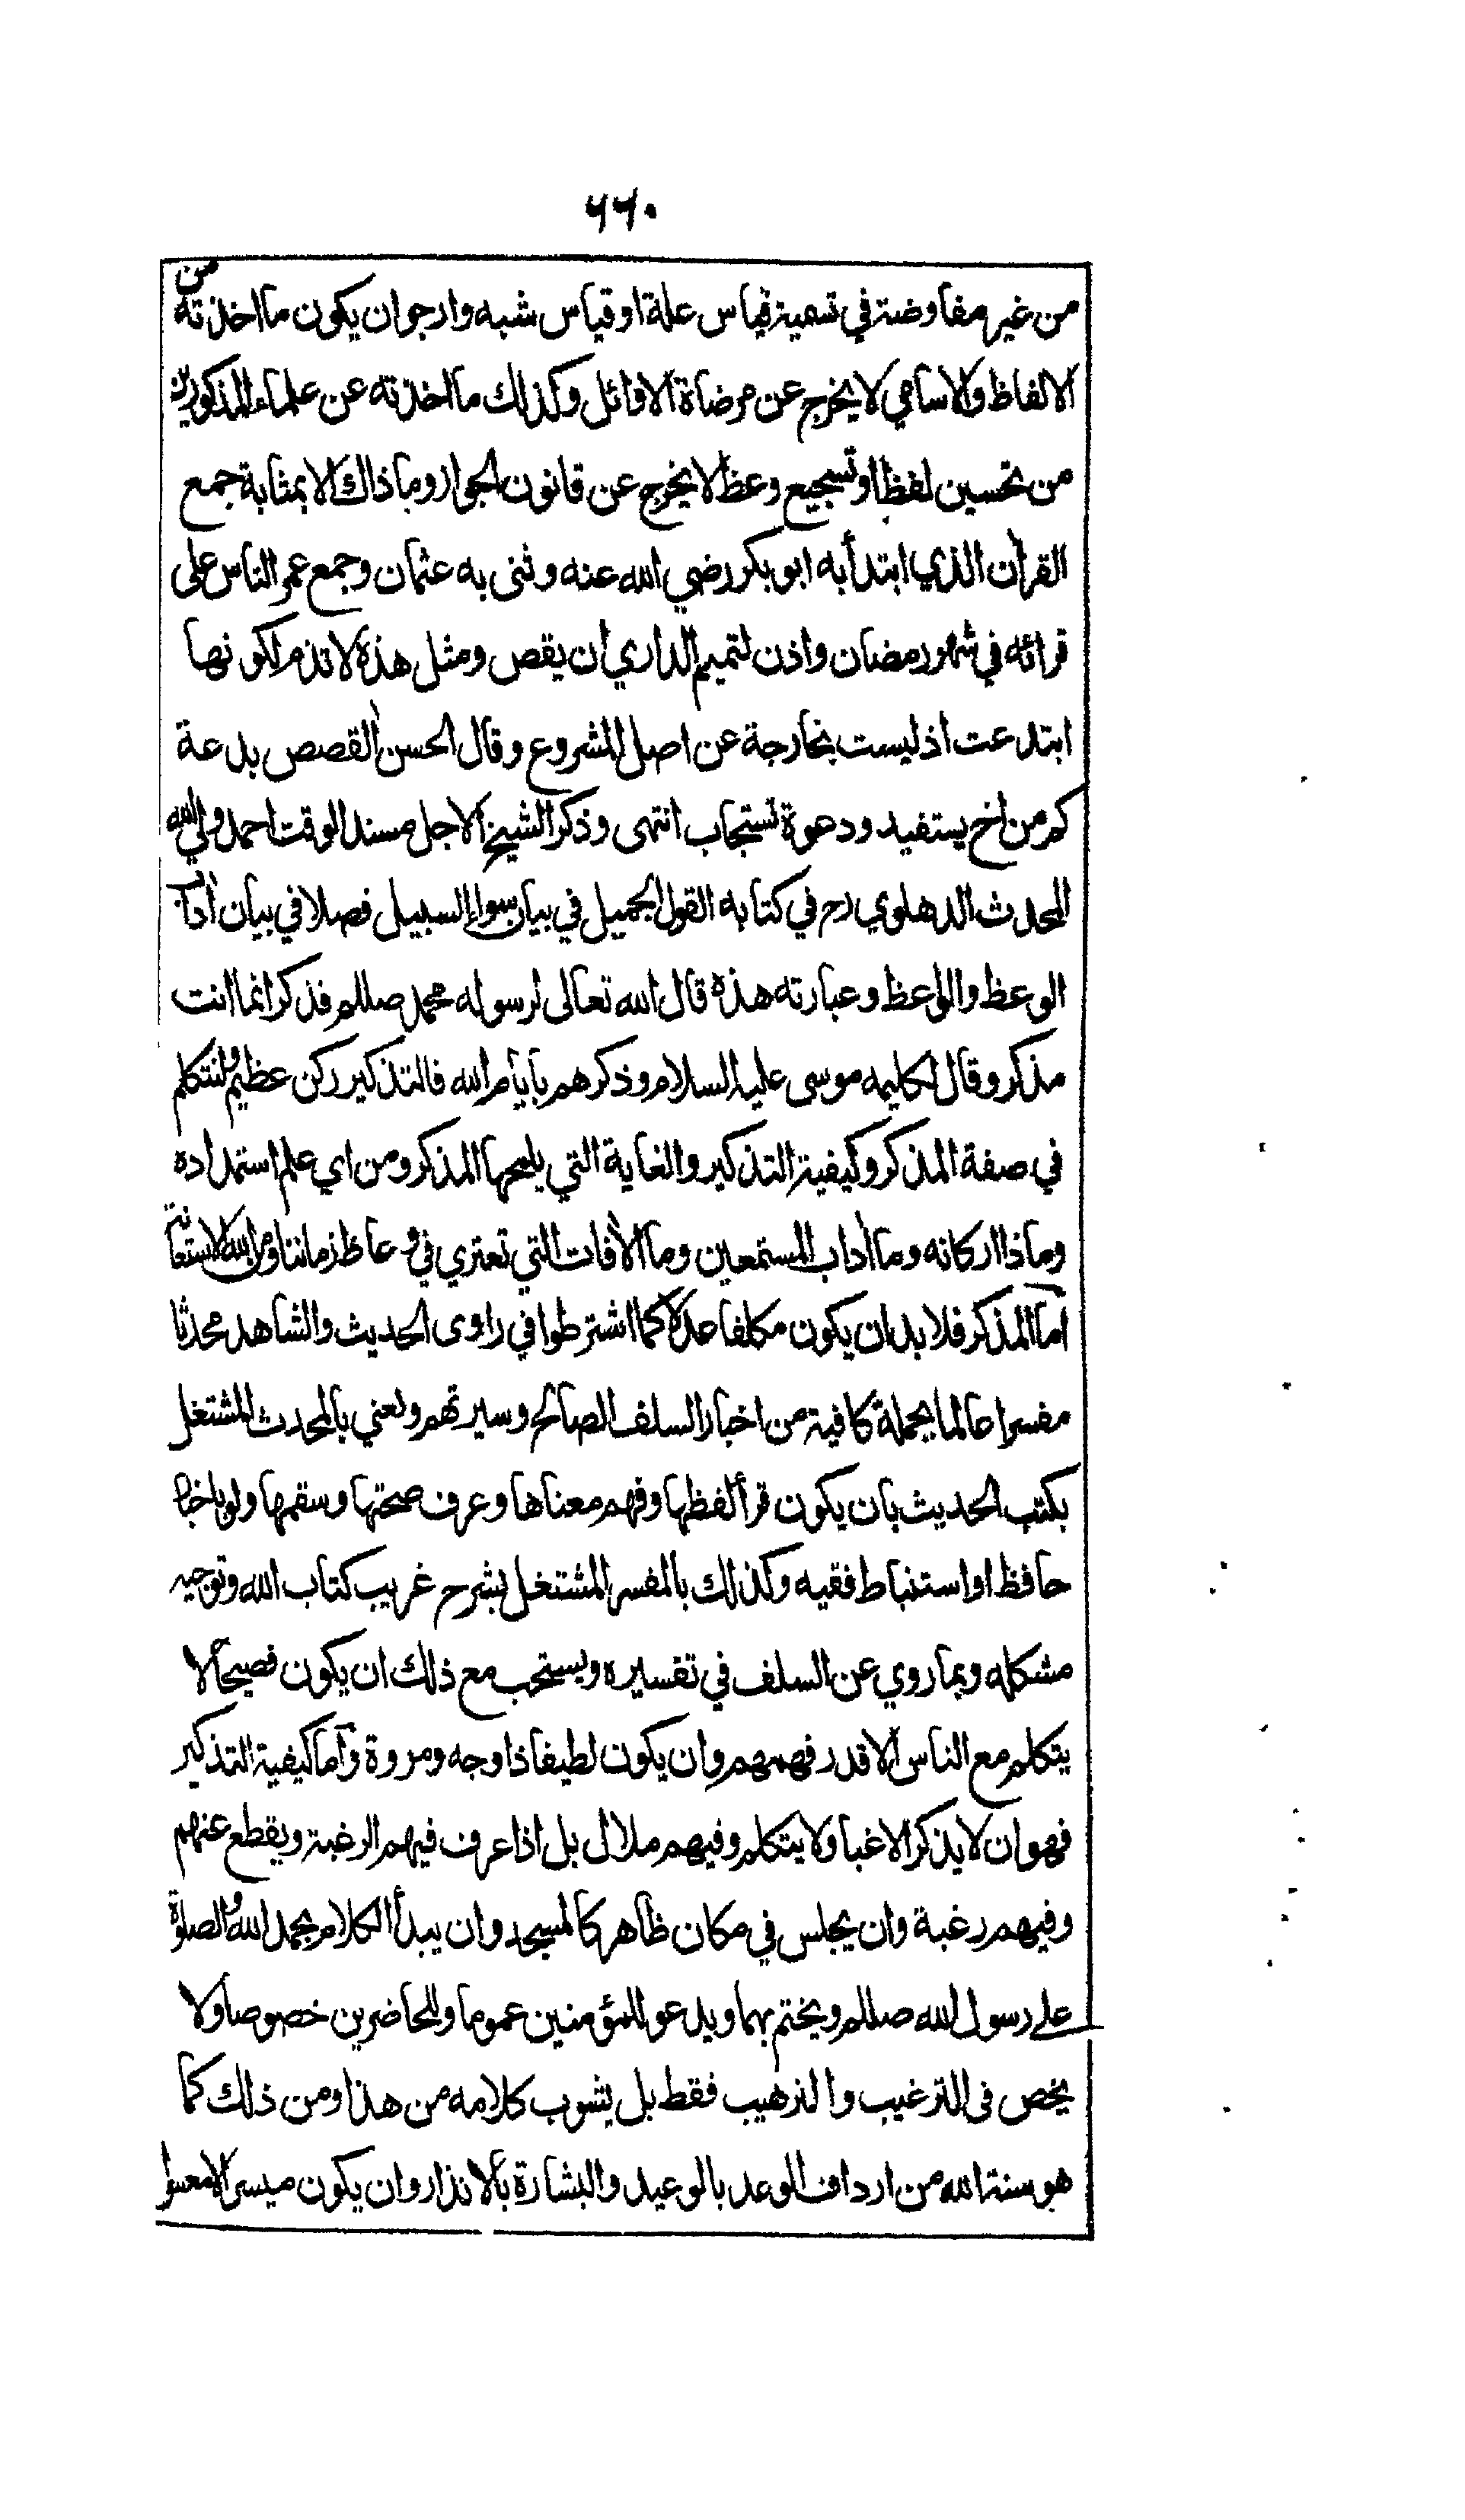 ٦٦٠
من غير مفاوضة في تسمية قياس علة او قياس شبه وارجو ان يكون ما اخذته من
الالفاظ والاسامي لا يخرج عن مرضاة الاوائل وكذلك ما اخذته عن علماء المذكورين
من تحسين لفظ او تسجيع وعظ لا يخرج عن قانون الجواز وما ذاك الا بمثابة جمع
القرآن الذي ابتدأ به ابو بكر رضي الله عنه وثنى به عثمان وجمع عمر الناس على
قرائه في شهر رمضان واذن لتميم الداري ان يقص ومثل هذه لا تذم لكونها
ابتدعت اذ ليست بخارجة عن اصل المشروع وقال الحسن القصص بدعة
كم من اخ يستفيد ودعوة تستجاب انتهى وذكر الشيخ الاجل مسند الوقت احمد ولي الله
المحدث الدهلوي رح في كتابه القول الجميل في بيان سواء السبيل فصلا في بيان آداب
الوعظ والواعظ وعبارته هذه قال الله تعالى لرسوله محمد صللم فذكر انما انت
مذكر وقال لكليمه موسى عليه السلام وذكرهم بأيام الله فالتذكير ركن عظيم ولنتكلم
في صفة المذكر وكيفية التذكير والغاية التي يلمحها المذكر ومن اي علم استمداده
وماذا اركانه وما آداب المستمعين وما الآفات التي تعتري في وعاظ زماننا ومن الله الاستعانة
اما المذكر فلا بد ان يكون مكلفا عدلا كما اشترطوا في راوى الحديث والشاهد محدثا
مفسرا عالما بجملة كافية من اخبار السلف الصالح وسيرتهم ونعني بالمحدث المشتغل
بكتب الحديث بان يكون قرأ لفظها وفهم معناها وعرف صحتها وسقمها ولو باخبار
حافظ او استنباط فقيه وكذلك بالمفسر المشتغل بشرح غريب كتاب الله وتوجيه
مشكله وبما روي عن السلف في تفسيره ويستحب مع ذلك ان يكون فصيحا لا
يتكلم مع الناس الا قدر فهمهم وان يكون لطيفا ذا وجه ومروة واما كيفية التذكير
فهو ان لا يذكر الا غبا ولا يتكلم وفيهم ملال بل اذا عرف فيهم الرغبة ويقطع عنهم
وفيهم رغبة وان يجلس في مكان ظاهر كالمسجد وان يبدأ الكلام بحمد الله والصلوة
على رسول الله صللم ويختم بهما ويدعو للمؤمنين عموما وللحاضرين خصوصا ولا
يخص فى الترغيب والترهيب فقط بل يشوب كلامه من هذا ومن ذلك كما
هو سنة الله من ارداف الوعد بالوعيد والبشارة بالانذار وان يكون ميسرا لا معسرا